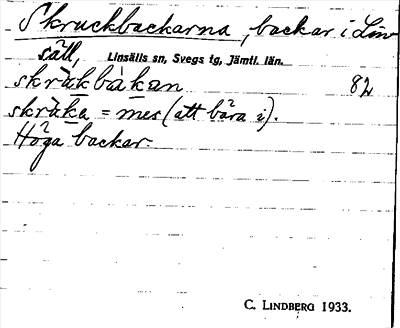 Skruckbackarna, backar i Lin
säll, Linsälls sn, Svegs tg, Jämtl. län.
skrùkbàkan 82
skrùka = mes (att bära i).
Höga backar.
C. LINDBERG 1933.